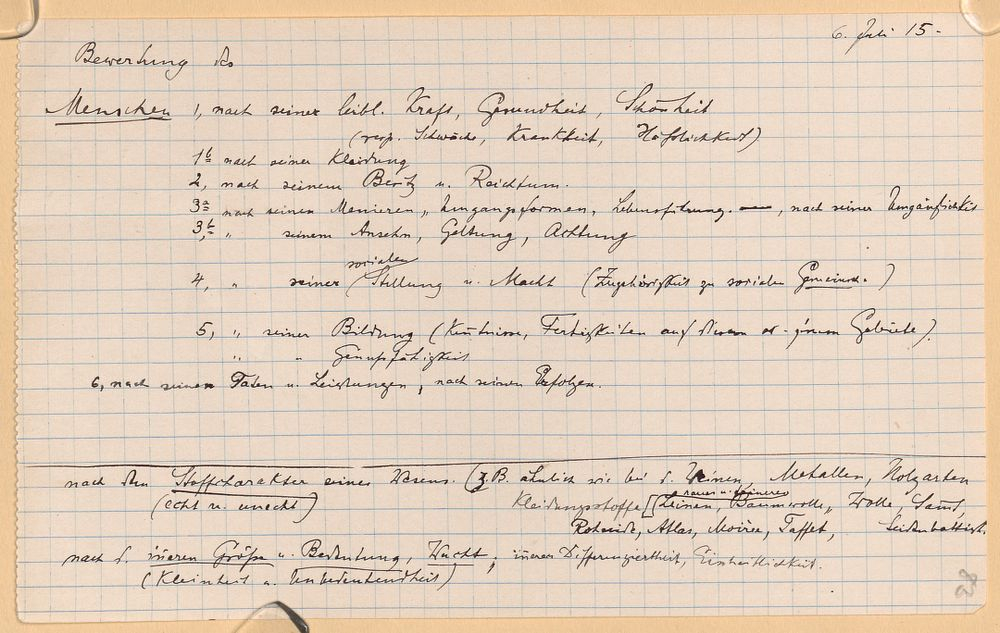 6. Juli 15.
Bewertung des
Menschen 1, nach seiner leibl. Kraft, Gesundheit, Schönheit
(resp. Schwäche, Krankheit, Häßlichkeit)
1b nach seiner Kleidung
2, nach seinem Besitz u. Reichtum.
3a nach seinen Manieren, Umgangsformen, Lebensführung. —, nach seiner Umgänglichkeit
3b, " seinem Ansehn, Geltung, Achtung
sozialen
4, " seiner Stellung u. Macht (Zugehörigkeit zu sozialen Gemeinsch.)
5, " seiner Bildung (Kentnisse, Fertigkeiten auf diesem od. jenem Gebiete).
" " Genußfähigkeit
6, nach seinen Taten u. Leistungen, nach seinen Erfolgen.
nach dem Stoffcharakter eines Wesens. (z.B. ähnlich wie bei d. Weinen, Metallen, Holzarten
(echt u. unecht)
rauer u. feineres
Kleidungsstoffe [(Leinen, Baumwolle, Wolle, Samt,
Rohseide, Atlas, Moirée, Taffet, Seidenbattist.
nach d. inneren Größe u. Bedeutung, Wucht, inneren Differenziertheit, Einheitlichkeit.
(Kleinheit u. Unbedeutendheit)